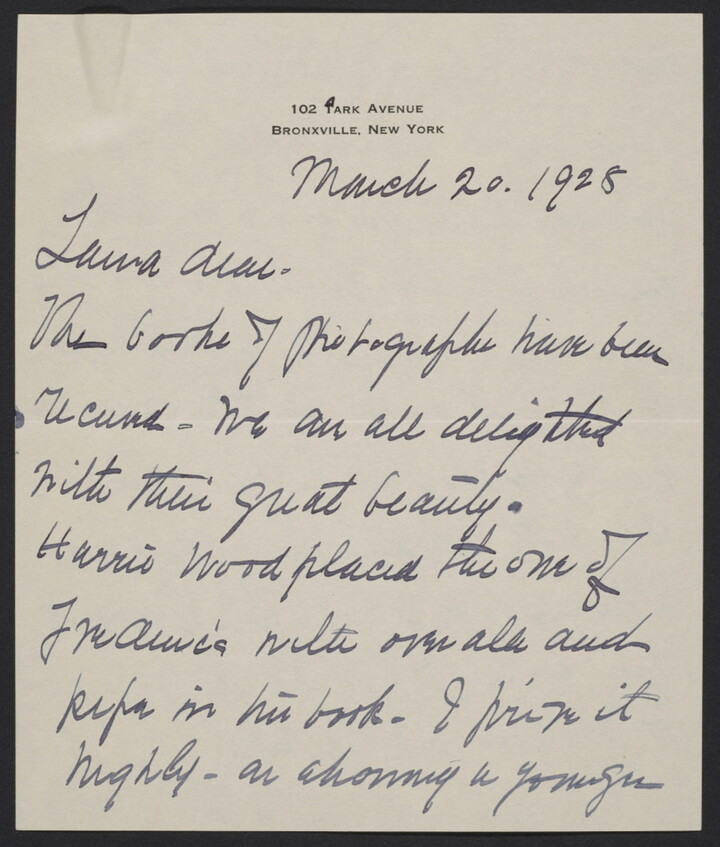 102 PARK AVENUE
BRONXVILLE, NEW YORK
March 20. 1928
Laura dear-
The books of photographs have been
received - we are all delighted
with their great beauty.
Harrie Wood placed the one of
Frederick with overalls and
in his book. I prize it
highly - as showing a younger